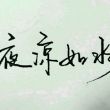 夜凉如水